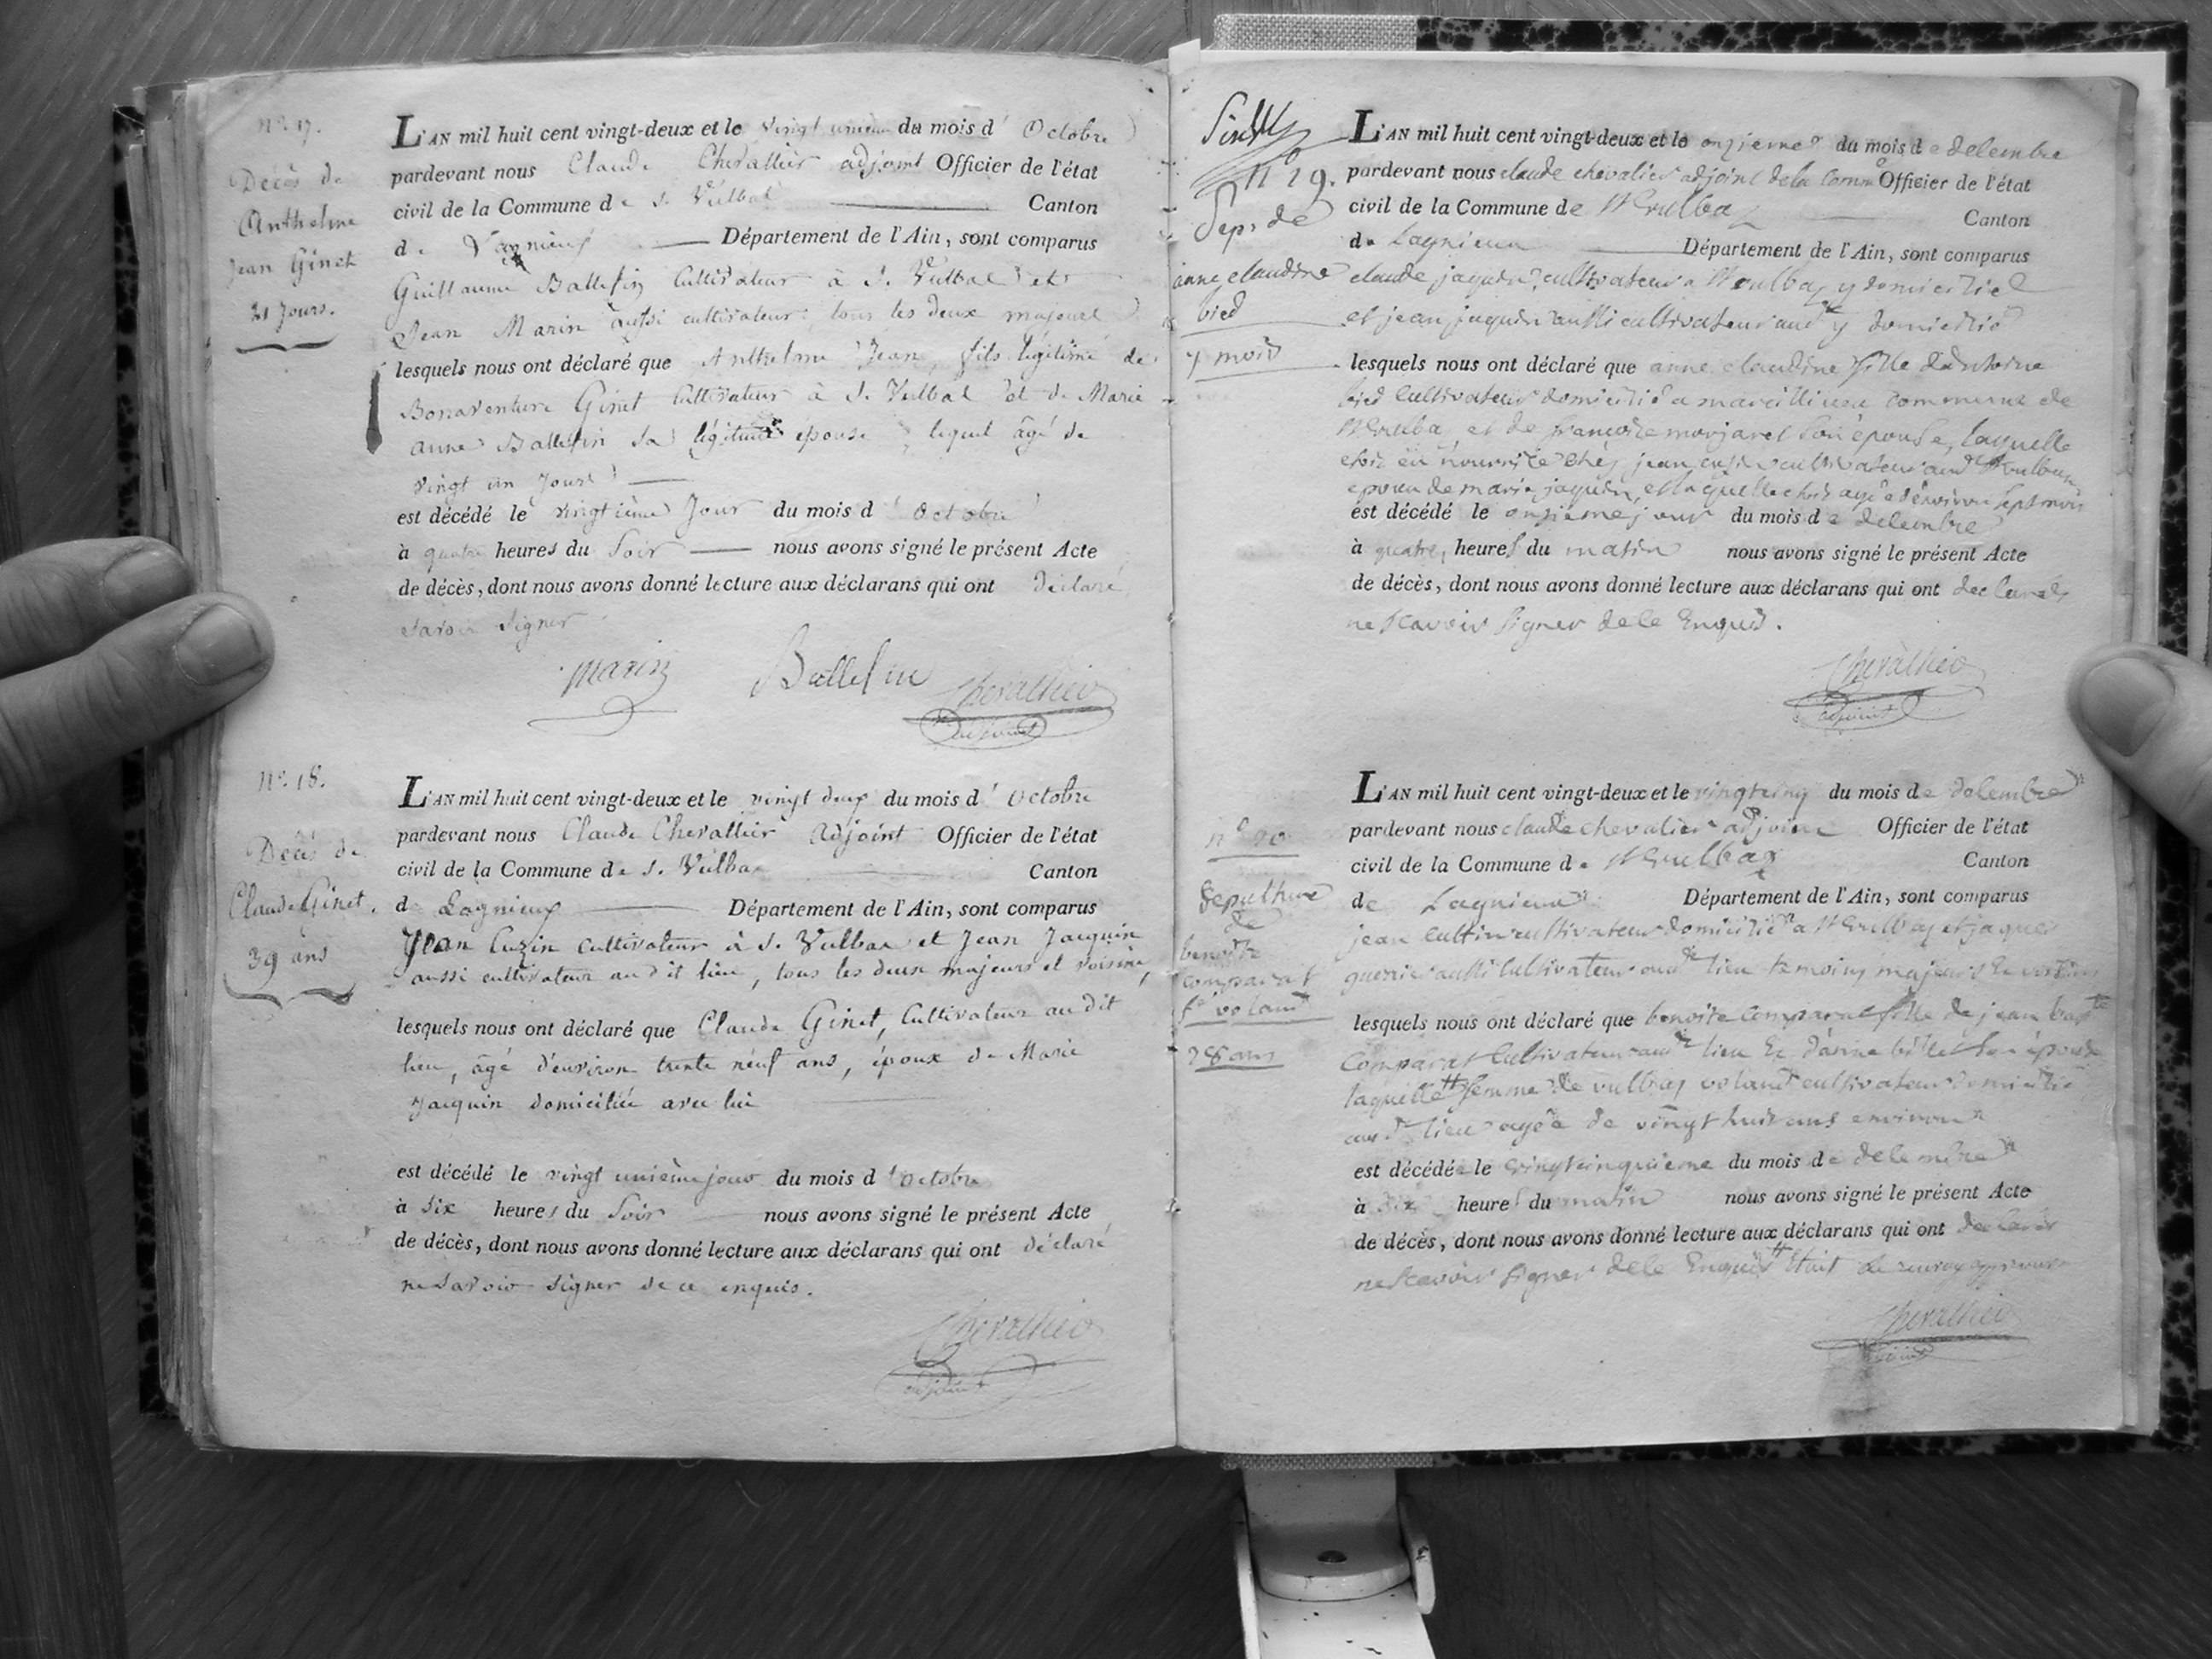 N° 17.
Décès de
Anthelme
Jean Ginet
21 Jours.
L'AN mil huit cent vingt-deux et le vingt unieme du mois d' Octobre
pardevant nous Claude Chevallier adjoint Officier de l'état
civil de la Commune de St. Vulbas Canton
de Lagnieux Département de l'Ain, sont comparus
Guillaume Ballefin Cultivateur à St. Vulbas et
Jean Marin aussi cultivateur tous les deux majeurs
lesquels nous ont déclaré que Anthelme Jean, fils légitime de
Bonaventure Ginet Cultivateur à St. Vulbas et de Marie
anne Ballefin sa légitime epouse, lequel âgé de
vingt un Jours
est décédé le vingtième Jour du mois d' Octobre
à quatre heures du Soir nous avons signé le présent Acte
de décès, dont nous avons donné lecture aux déclarans qui ont déclaré
savoir signer
Marin Ballefin Chevallier
adjoint
N° 18.
Décès de
Claude Ginet.
39 ans
L'AN mil huit cent vingt-deux et le vingt deux du mois d' Octobre
pardevant nous Claude Chevallier Adjoint Officier de l'état
civil de la Commune de St. Vulbas Canton
de Lagnieux Département de l'Ain, sont comparus
Jean Cuzin cultivateur à St. Vulbas et Jean Jacquin
aussi cultivateur au dit lieu, tous les deux majeurs et voisins,
lesquels nous ont déclaré que Claude Ginet, Cultivateur au dit
lieu, âgé d'environ trente neuf ans, époux de Marie
Jacquin domiciliée avec lui
est décédé le vingt unième jour du mois d' Octobre
à Six heures du Soir nous avons signé le présent Acte
de décès, dont nous avons donné lecture aux déclarans qui ont déclaré
ne savoir signer de ce enquis.
Chevallier
adjoint
N° 19.
Sep. de
anne claudine
bied
7 mois
L'AN mil huit cent vingt-deux et le onzieme du mois de decembre
pardevant nous claude chevalier adjoint de la Comm Officier de l'état
civil de la Commune de St vulbas Canton
de Lagnieux Département de l'Ain, sont comparus
claude jaquin cultivateur a St vulbas y domicilié
et jean jaquin aussi cultivateur aud y domicilié
lesquels nous ont déclaré que anne claudine fille dantoine
bied Cultivateur domicilié a marcillieux commune de
St vulbas et de francoise morjaret son épouse, laquelle
etoit en nourrice chés jean cusin cultivateur aud St vulbas
epoux de marie jaquin, et laquelle etoit agée d'environ sept mois
est décédé le onzieme jour du mois de decembre
à quatre heures du matin nous avons signé le présent Acte
de décès, dont nous avons donné lecture aux déclarans qui ont declarés
ne scavoir signer de ce Enquis.
Chevallier
adjoint
n° 20
Sepulture
de
benoite
comparat
fe volant
28 ans
L'AN mil huit cent vingt-deux et le vingtcinq du mois de decembre
pardevant nous claude chevalier adjoint Officier de l'état
civil de la Commune de St vulbas Canton
de Lagnieux Département de l'Ain, sont comparus
jean cultivateur domicilié a St vulbas et jaques
aussi Cultivateur aud lieu temoins majeurs et voisins
lesquels nous ont déclaré que benoite comparat fille de jean bapte
Comparat Cultivateur aud lieu et son épouse
laquelle femme de vulbas volant cultivateur domicilié
aud lieu agée de vingt huit ans environ
est décédée le vingtcinquieme du mois de decembre
à Six heures du matin nous avons signé le présent Acte
de décès, dont nous avons donné lecture aux déclarans qui ont declarés
ne scavoir signer de ce Enquis Etait le renvoy approuvé
Chevallier
adjoint